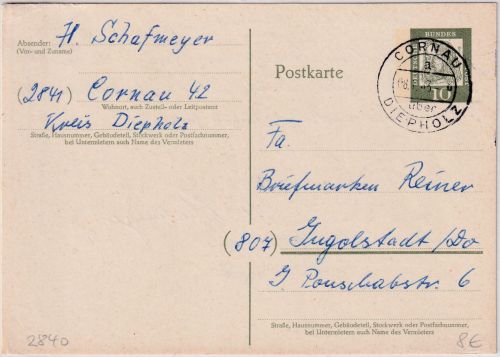 Absender:
(Vor- und Zuname)
H. Schafmeyer
(2841) Cornau 42
Wohnort, auch Zustell- oder Leitpostamt
Kreis Diepholz
Straße, Hausnummer, Gebäudeteil, Stockwerk oder Postfachnummer,
bei Untermietern auch Name des Vermieters
2840
Postkarte
BUNDES
10
CORNAU
a
über
DIEPHOLZ
Fa.
Briefmarken Reiner
(807) Ingolstadt/Do
J Ponschabstr. 6
Straße, Hausnummer, Gebäudeteil, Stockwerk oder Postfachnummer,
bei Untermietern auch Name des Vermieters
8€